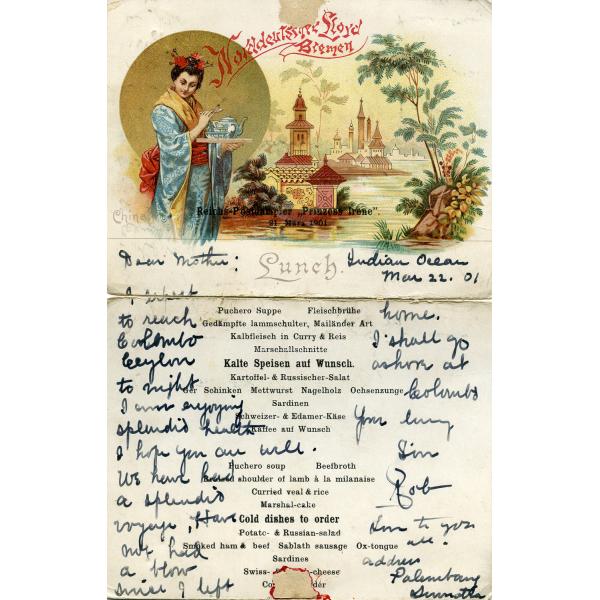 Norddeutscher Lloyd
Bremen
China
Reichs-Postdampfer „Prinzess Irene".
21. März 1901
Lunch.
Dear Mother:
Indian Ocean
Mar 22. 01
I expect
to reach
Colombo
Ceylon
to night
I am enjoying
splendid health
I hope you are well.
We have had
a splendid
voyage, Have
not had
a blow
since I left
home.
I shall go
ashore at
Colombo
Your loving
Son
Rob
Love to you
all.
address
Palembang
Sumatra
Puchero Suppe Fleischbrühe
Gedämpfte lammschulter, Mailänder Art
Kalbfleisch in Curry & Reis
Marschallschnitte
Kalte Speisen auf Wunsch.
Kartoffel- & Russischer-Salat
Ger Schinken Mettwurst Nagelholz Ochsenzunge
Sardinen
Schweizer- & Edamer-Käse
Kaffee auf Wunsch
Puchero soup Beefbroth
shoulder of lamb à la milanaise
Curried veal & rice
Marshal-cake
Cold dishes to order
Potato- & Russian-salad
Smoked ham & beef Sablath sausage Ox-tongue
Sardines
Swiss- -cheese
Co der